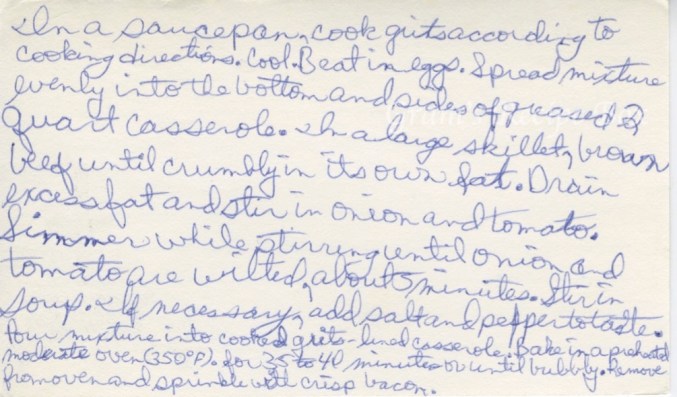 In a saucepan, cook grits according to
cooking directions. Cool. Beat in eggs. Spread mixture
evenly into the bottom and sides of greased 2
quart casserole. In a large skillet, brown
beef until crumbly in its own fat. Drain
excess fat and stir in onion and tomato.
Simmer while stirring until onion and
tomato are wilted, about 5 minutes. Stir in
soup. If necessary, add salt and pepper to taste.
Pour mixture into cooked grits-lined casserole. Bake in a preheated
moderate oven (350°F). for 35 to 40 minutes or until bubbly. Remove
from oven and sprinkle with crisp bacon.